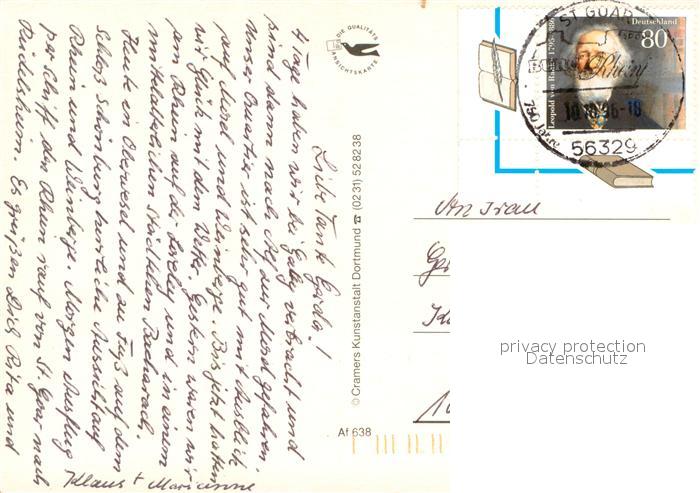 Liebe Tante Gerda!
4 Tage haben wir bei Gaby verbracht und
sind dann nach Alf a. d. Mosel gefahren.
Unser Quartier ist sehr gut mit Ausblick
auf Mosel und Weinberge. Bis jetzt hatten
wir Glück mit dem Wetter. Gestern waren wir
am Rhein auf der Loreley und in einem
mittelalterlichen Städtchen Bacharach.
Heute in Oberwesel und zu Fuß auf dem
Schloß Schönburg herrliche Aussicht auf
Rhein und Weinberge. Morgen Ausflug
per Schiff den Rhein rauf von St. Goar nach
Rüdesheim. Es grüßen Dich Rita und
Klaus + Marianne
DIE QUALITÄTS
ANSICHTSKARTE
© Cramers Kunstanstalt Dortmund ☎ (02 31) 52 82 38
Af 638
Deutschland
80
Leopold von Ranke 1795-1886
ST GOAR
750 Jahre
56329
An Frau
privacy protection
Datenschutz